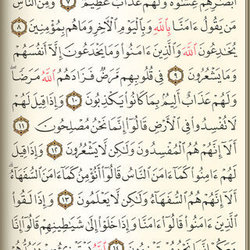 أَبْصَٰرِهِمْ غِشَٰوَةٌ وَلَهُمْ عَذَابٌ عَظِيمٌ ٧ وَمِنَ ٱلنَّاسِ
مَن يَقُولُ ءَامَنَّا بِٱللَّهِ وَبِٱلْيَوْمِ ٱلْأَخِرِ وَمَا هُم بِمُؤْمِنِينَ ٨
يُخَٰدِعُونَ ٱللَّهَ وَٱلَّذِينَ ءَامَنُوا۟ وَمَا يَخْدَعُونَ إِلَّآ أَنفُسَهُمْ
وَمَا يَشْعُرُونَ ٩ فِى قُلُوبِهِم مَّرَضٌ فَزَادَهُمُ ٱللَّهُ مَرَضًا
وَلَهُمْ عَذَابٌ أَلِيمٌۢ بِمَا كَانُوا۟ يَكْذِبُونَ ١٠ وَإِذَا قِيلَ لَهُمْ
لَا تُفْسِدُوا۟ فِى ٱلْأَرْضِ قَالُوٓا۟ إِنَّمَا نَحْنُ مُصْلِحُونَ ١١
أَلَآ إِنَّهُمْ هُمُ ٱلْمُفْسِدُونَ وَلَٰكِن لَّا يَشْعُرُونَ ١٢ وَإِذَا قِيلَ
لَهُمْ ءَامِنُوا۟ كَمَآ ءَامَنَ ٱلنَّاسُ قَالُوٓا۟ أَنُؤْمِنُ كَمَآ ءَامَنَ ٱلسُّفَهَآءُ
أَلَآ إِنَّهُمْ هُمُ ٱلسُّفَهَآءُ وَلَٰكِن لَّا يَعْلَمُونَ ١٣ وَإِذَا لَقُوا۟
ٱلَّذِينَ ءَامَنُوا۟ قَالُوٓا۟ ءَامَنَّا وَإِذَا خَلَوْا۟ إِلَىٰ شَيَٰطِينِهِمْ قَالُوٓا۟ إِنَّا